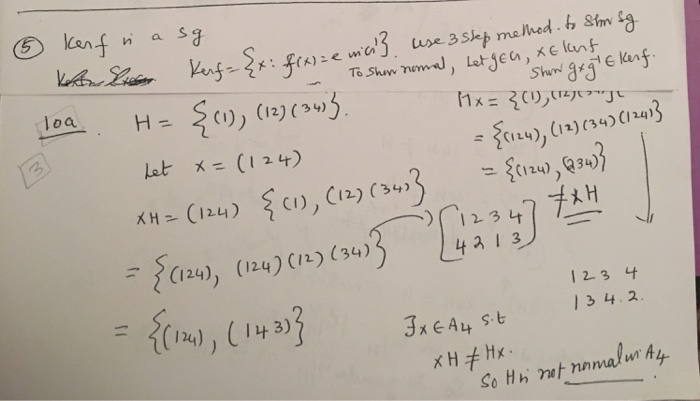 ⑤ Kerf is a sg
Kerf = {x : f(x) = e in G'}. use 3 step method. to show sg
To show normal, Let g ∈ G, x ∈ Kerf
Show gxg⁻¹ ∈ Kerf.
10a
3
H = {(1), (12)(34)}.
Let x = (124)
xH = (124) {(1), (12)(34)}
= {(124), (124)(12)(34)}
= {(124), (143)}
[1 2 3 4
4 2 1 3]
Hx = {(1), (12)(34)}
= {(124), (12)(34)(124)}
= {(124), (234)}
≠ xH
1 2 3 4
1 3 4 2.
∃x ∈ A4 s.t
xH ≠ Hx.
So H is not normal in A4